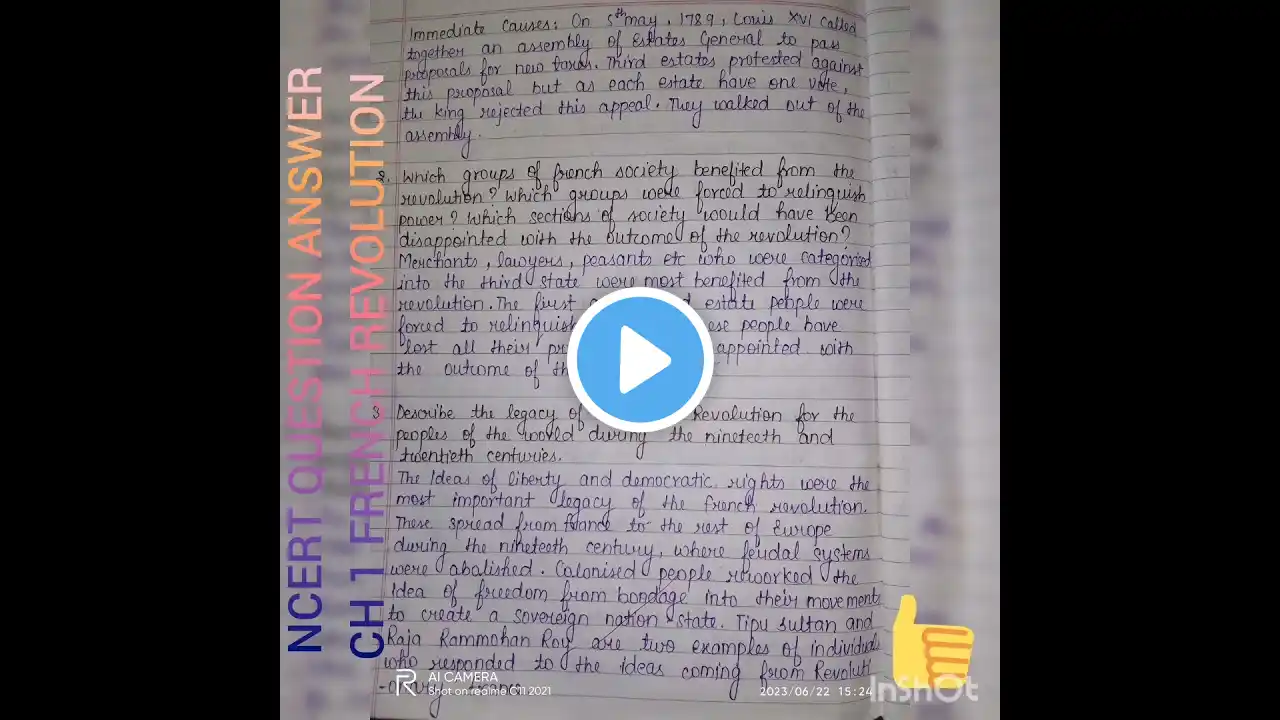 NCERT QUESTION ANSWER
CH 1 FRENCH REVOLUTION
Immediate Causes: On 5th may, 1789, Louis XVI called
together an assembly of Estates General to pass
proposals for new taxes. Third estates protested against
this proposal but as each estate have one vote,
the king rejected this appeal. They walked out of the
assembly.
2. Which groups of french society benefited from the
revolution? Which groups were forced to relinquish
power? Which sections of society would have been
disappointed with the outcome of the revolution?
Merchants, lawyers, peasants etc who were categorised
into the third state were most benefited from the
revolution. The first estate people were
forced to relinquish people have
lost all their with
the outcome of
3. Describe the legacy of Revolution for the
peoples of the world during the nineteeth and
twentieth centuries.
The Ideas of liberty and democratic rights were the
most important legacy of the french revolution.
These spread from france to the rest of Europe
during the nineteeth century, where feudal systems
were abalished. Colonised people reworked the
Idea of freedom from bondage into their movements
to create a sovereign nation state. Tipu sultan and
Raja Rammohan Roy are two examples of individuals
who responded to the ideas coming from Revoluti
R AI CAMERA
Shot on realme C11 2021
2023/06/22 15:24
InShOt